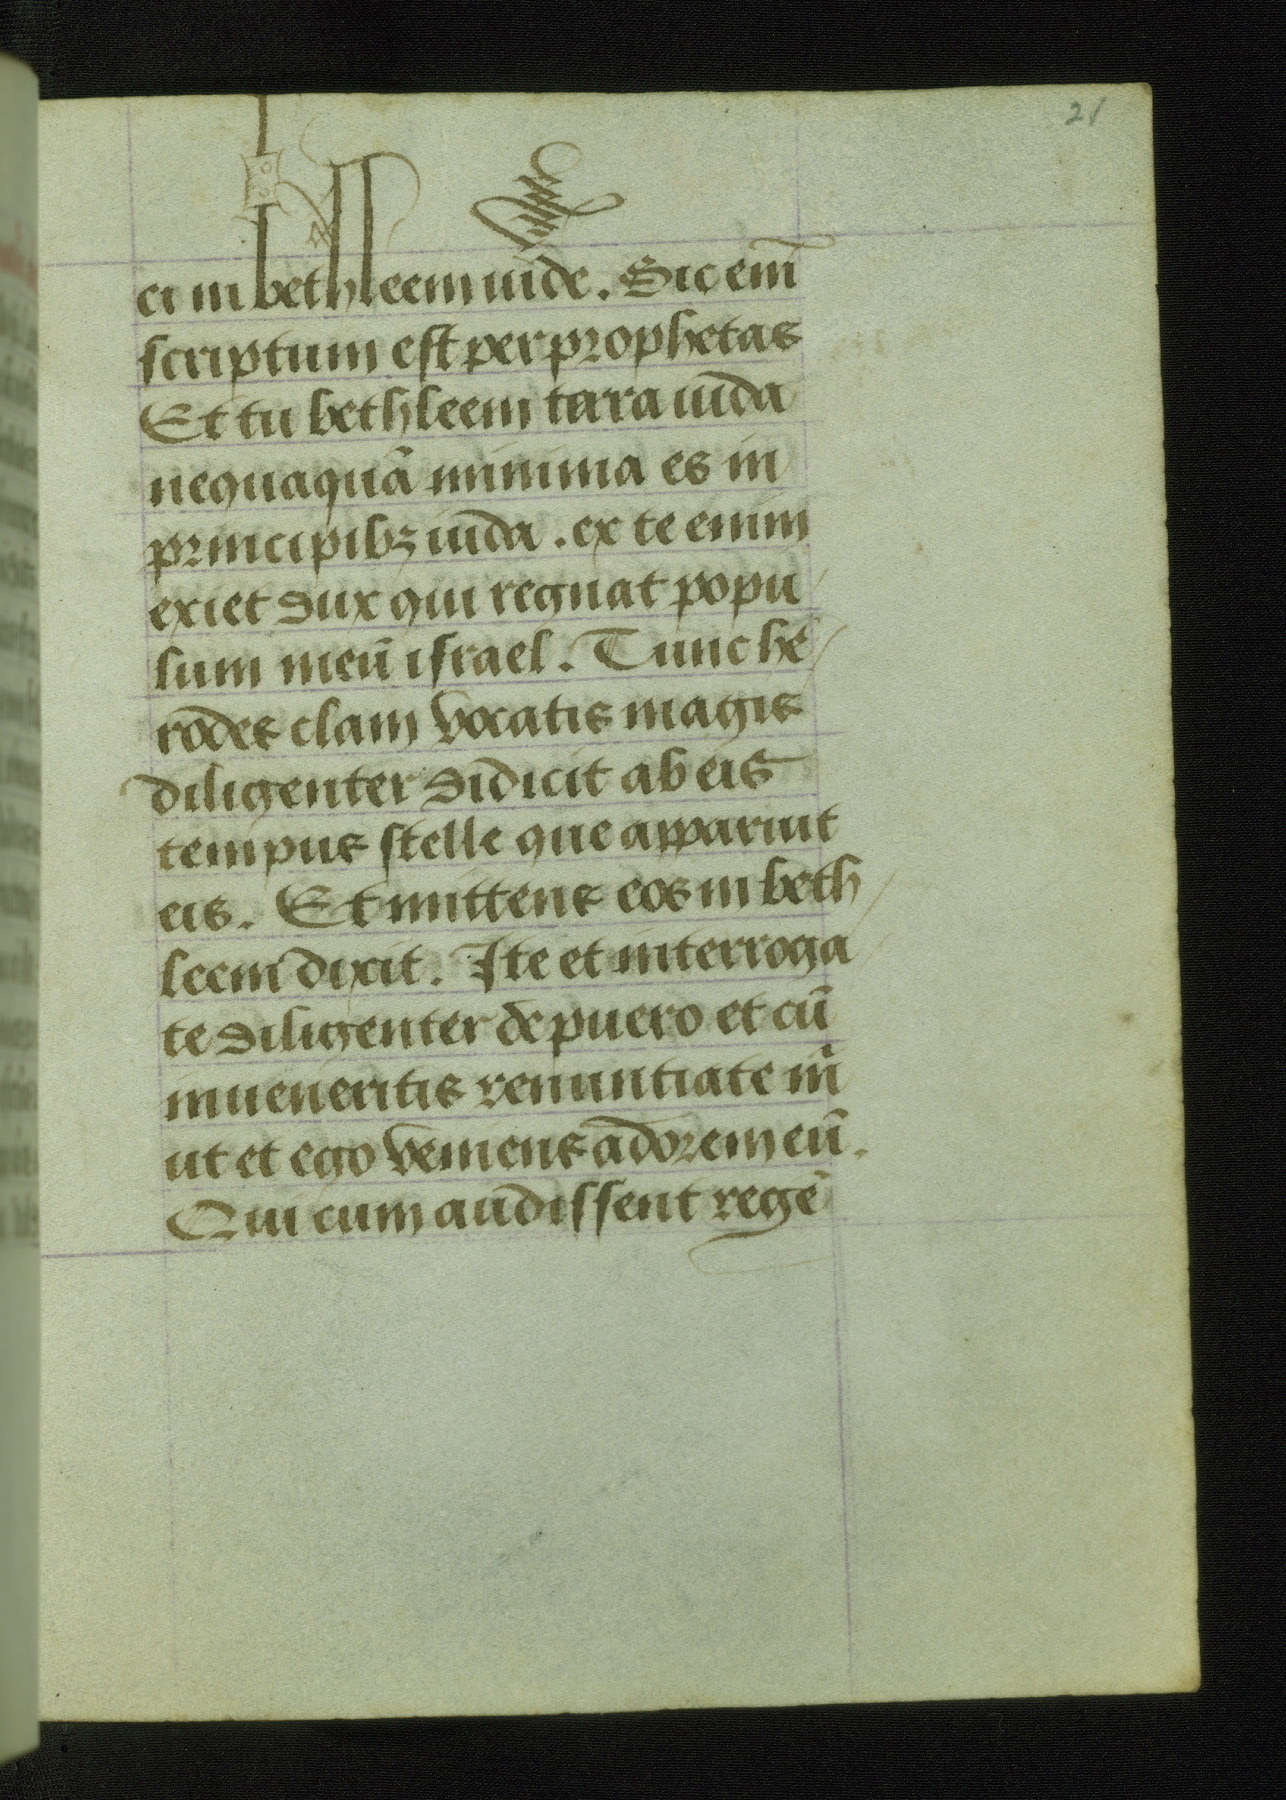 21
ci in bethleem iude. Sic eni̅
scriptum est per prophetas
Et tu bethleem terra iuda
nequaqua̅ minima es in
principibꝫ iuda. ex te enim
exiet dux qui regnat popu
lum meu̅ israel. Tunc he
rodes clam vocatis magis
diligenter didicit ab eis
tempus stelle que apparuit
eis. Et mittens eos in beth
leem dixit. Ite et interroga
te diligenter de puero et cu̅
inueneritis renuntiate m̅
ut et ego veniens adorem eu̅.
Qui cum audissent rege̅